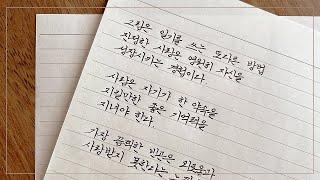 그림은 일기를 쓰는 또다른 방법
진업한 사람은 영원히 자신을
성장시키는 경험이다
사람은 자기가 한 약속을
지킬만한 좋은 기억력을
지녀야 한다.
가장 끔찍한 빈곤은 외로움과
사랑받지 못한다는